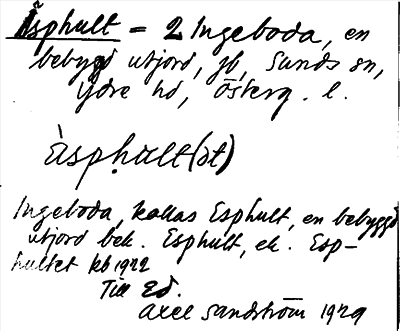 Äsphult = 2 Ingeboda, en
bebygd utjord, jb, Sunds sn,
Ydre hd, Österg. l.
àsphult(ət)
Ingeboda, kallas Esphult, en bebyggd
utjord bek. Esphult, ek. Esp-
hultet kb 1922
Till Ed.
Axel Sandström 1929